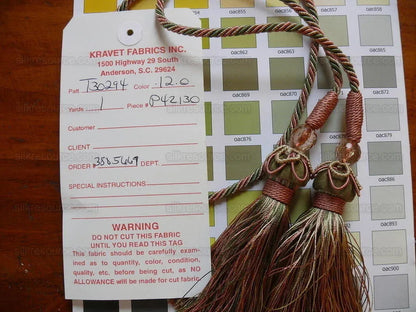 KRAVET FABRICS INC.
1500 Highway 29 South
Anderson, S.C. 29624
Patt. T30294 Color 12.0
Yards 1 Piece # P42130
Customer
CLIENT
ORDER # 3585669 DEPT.
SPECIAL INSTRUCTIONS
WARNING
DO NOT CUT THIS FABRIC
UNTIL YOU READ THIS TAG
This fabric should be carefully exam-
ined as to quantity, color, condition,
quality, etc. before being cut, as NO
ALLOWANCE will be made for cut fabric.
oac851
oac852
oac853
oac856
oac857
oac858
oac863
oac864
oac865
oac870
oac872
oac877
oac879
oac886
oac893
oac900
silkresource.com